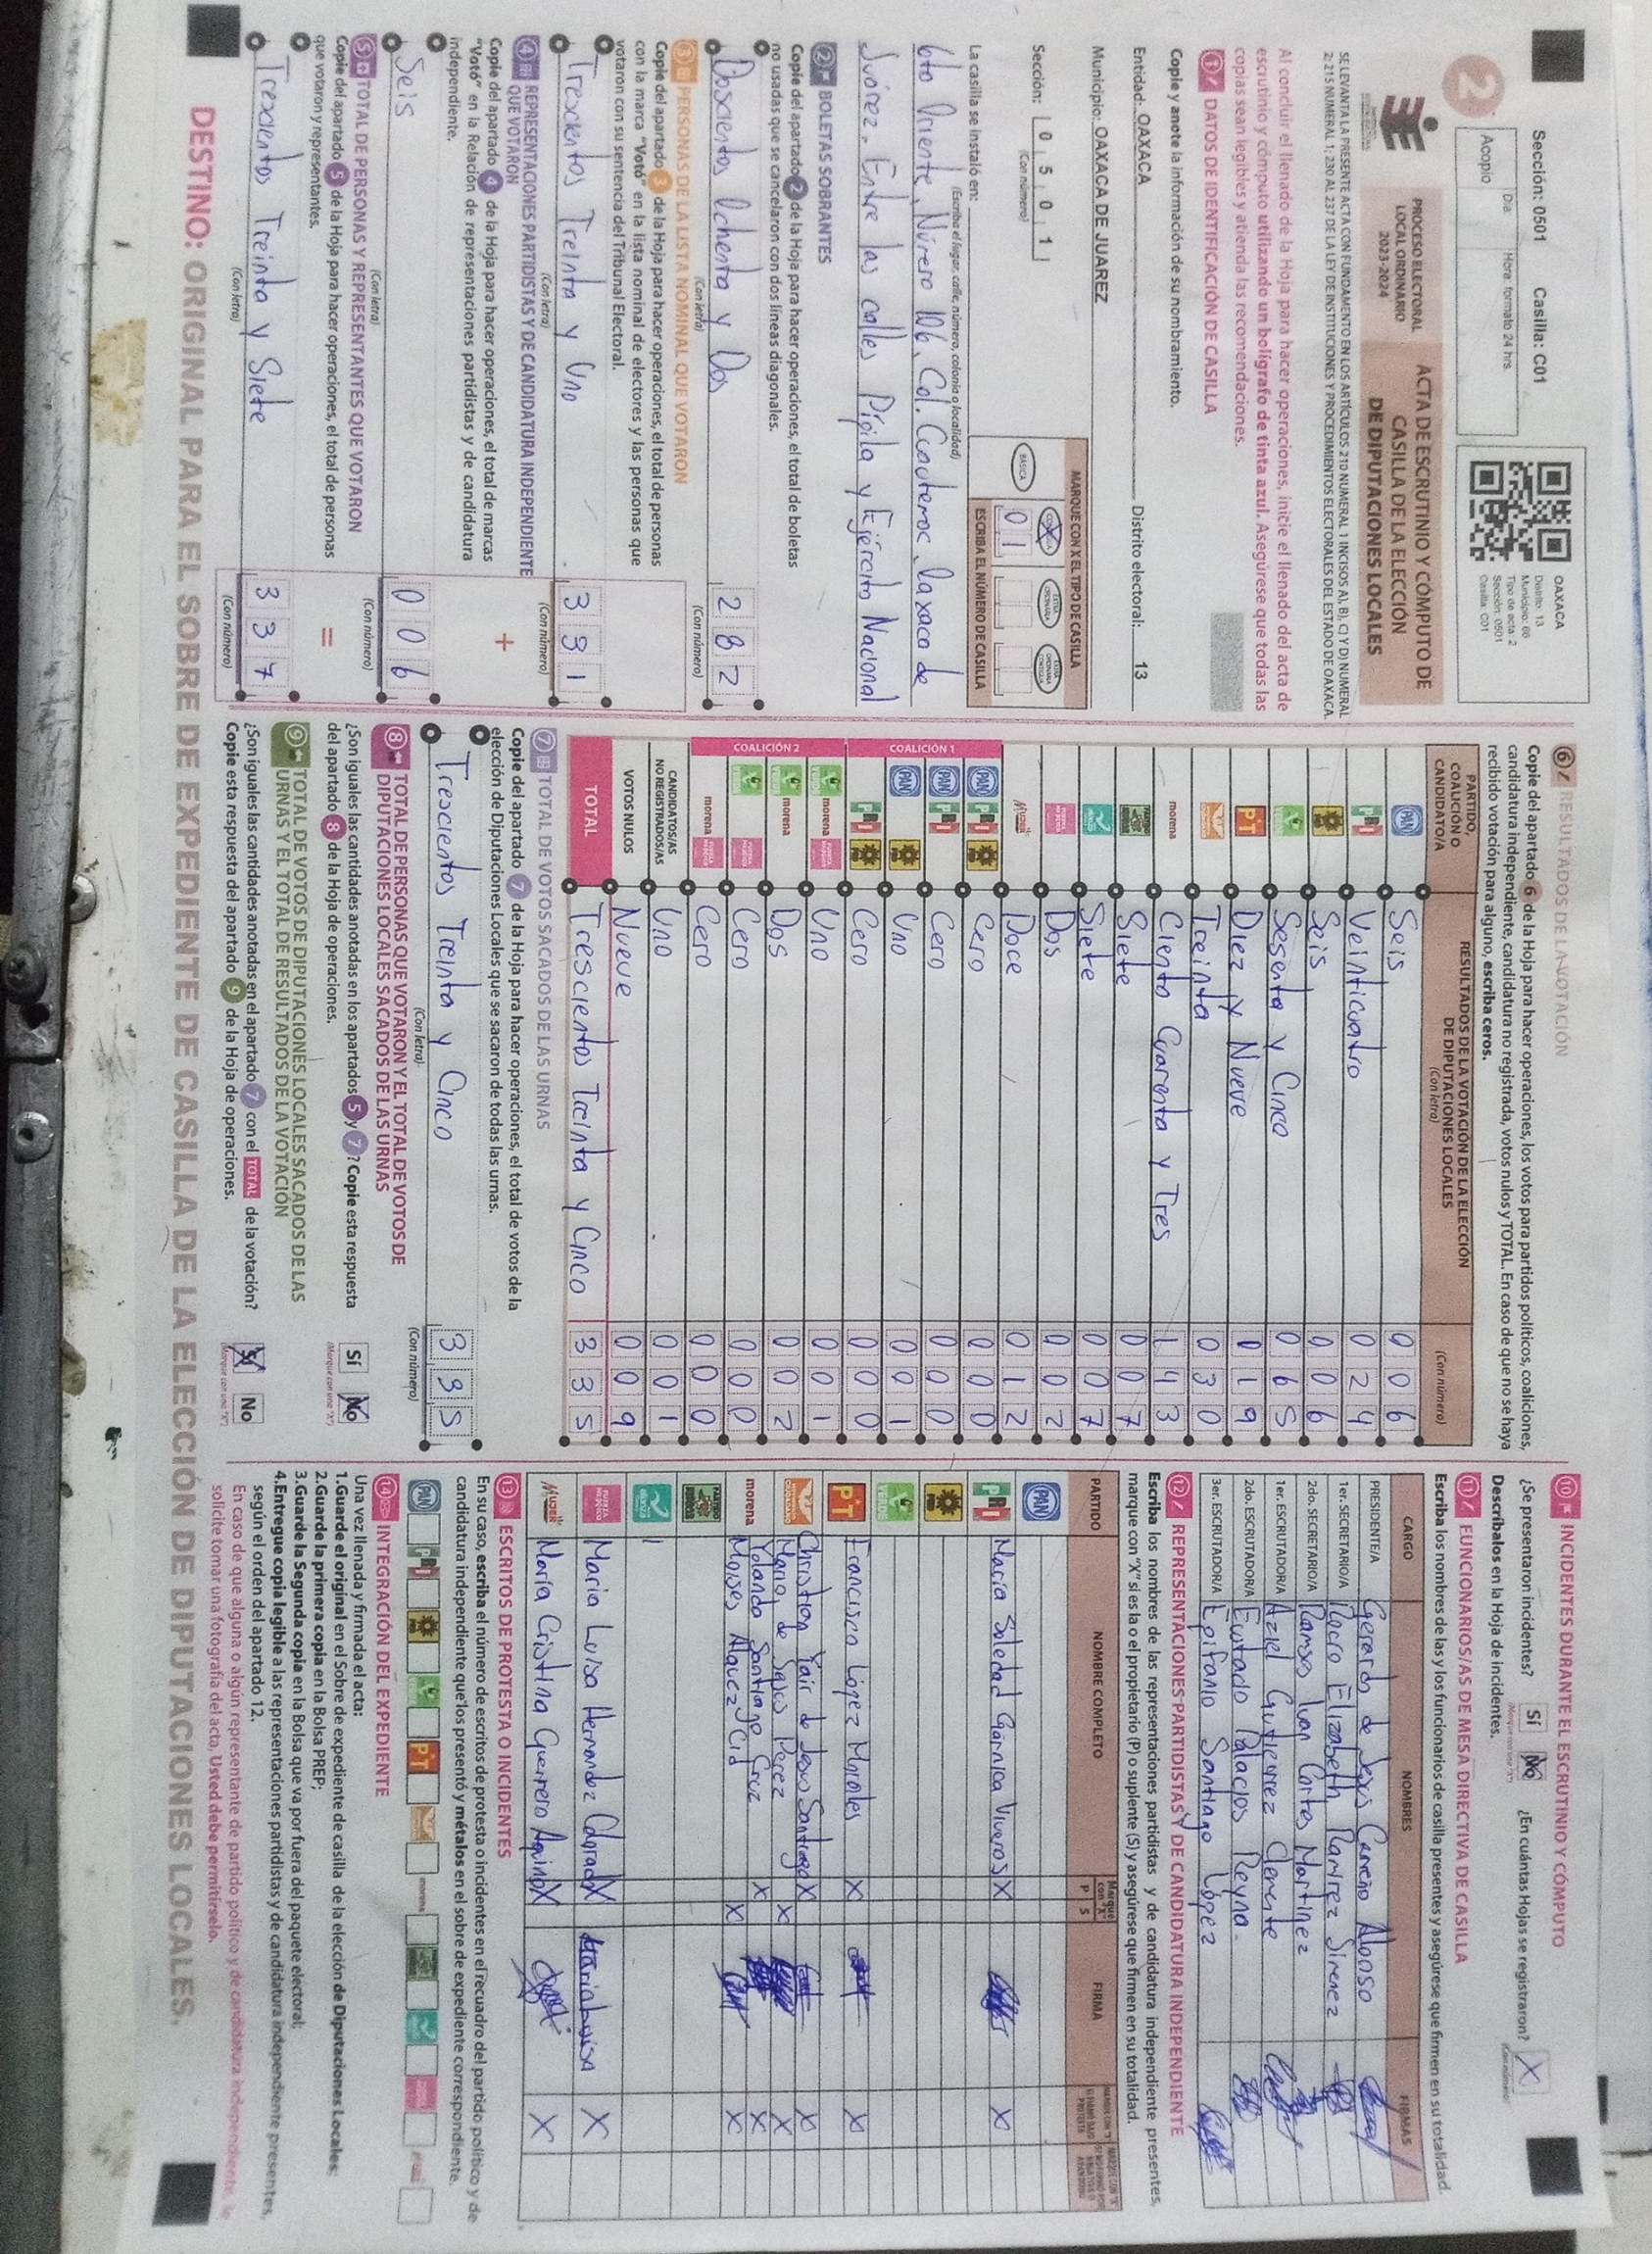 Sección: 0501 Casilla: C01
Día Hora: formato 24 hrs.
Acopio
OAXACA
Distrito: 13
Municipio: 66
Tipo de acta: 2
Sección: 0501
Casilla: C01
2
PROCESO ELECTORAL
LOCAL ORDINARIO
2023-2024
ACTA DE ESCRUTINIO Y CÓMPUTO DE
CASILLA DE LA ELECCIÓN
DE DIPUTACIONES LOCALES
SE LEVANTA LA PRESENTE ACTA CON FUNDAMENTO EN LOS ARTÍCULOS 210 NUMERAL 1 INCISOS A), B), C) Y D) NUMERAL
2; 215 NUMERAL 1; 230 AL 237 DE LA LEY DE INSTITUCIONES Y PROCEDIMIENTOS ELECTORALES DEL ESTADO DE OAXACA.
Al concluir el llenado de la Hoja para hacer operaciones, inicie el llenado del acta de
escrutinio y cómputo utilizando un bolígrafo de tinta azul. Asegúrese que todas las
copias sean legibles y atienda las recomendaciones.
1 DATOS DE IDENTIFICACIÓN DE CASILLA
Copie y anote la información de su nombramiento.
Entidad: OAXACA Distrito electoral: 13
Municipio: OAXACA DE JUAREZ
Sección: 0 5 0 1
(Con número)
MARQUE CON X EL TIPO DE CASILLA
BÁSICA
X
0 1
ESCRIBA EL NÚMERO DE CASILLA
La casilla se instaló en:
(Escriba el lugar, calle, número, colonia o localidad)
6to Oriente, Número 106, Col. Cuauhtemoc, Oaxaca de
Juárez, Entre las calles Pípila y Ejército Nacional
2 BOLETAS SOBRANTES
Copie del apartado 2 de la Hoja para hacer operaciones, el total de boletas
no usadas que se cancelaron con dos líneas diagonales.
Doscientos Ochenta y Dos 2 8 2
(Con letra) (Con número)
3 PERSONAS DE LA LISTA NOMINAL QUE VOTARON
Copie del apartado 3 de la Hoja para hacer operaciones, el total de personas
con la marca "Votó" en la lista nominal de electores y las personas que
votaron con su sentencia del Tribunal Electoral.
Trescientos Treinta y Uno 3 3 1
(Con letra) (Con número)
4 REPRESENTACIONES PARTIDISTAS Y DE CANDIDATURA INDEPENDIENTE
QUE VOTARON
+
Copie del apartado 4 de la Hoja para hacer operaciones, el total de marcas
"Votó" en la Relación de representaciones partidistas y de candidatura
independiente.
Seis 0 0 6
(Con letra) (Con número)
5 TOTAL DE PERSONAS Y REPRESENTANTES QUE VOTARON
=
Copie del apartado 5 de la Hoja para hacer operaciones, el total de personas
que votaron y representantes.
Trescientos Treinta y Siete 3 3 7
(Con letra) (Con número)
6 RESULTADOS DE LA VOTACIÓN
Copie del apartado 6 de la Hoja para hacer operaciones, los votos para partidos políticos, coaliciones,
candidatura independiente, candidatura no registrada, votos nulos y TOTAL. En caso de que no se haya
recibido votación para alguno, escriba ceros.
PARTIDO,
COALICIÓN O
CANDIDATO/A
RESULTADOS DE LA VOTACIÓN DE LA ELECCIÓN
DE DIPUTACIONES LOCALES
(Con letra)
(Con número)
PAN Seis 0 0 6
PRI Veinticuatro 0 2 4
PRD Seis 0 0 6
VERDE Sesenta y Cinco 0 6 5
PT Diez y Nueve 0 1 9
Treinta 0 3 0
morena Ciento Cuarenta y Tres 1 4 3
Siete 0 0 7
Siete 0 0 7
Dos 0 0 2
MUJER Doce 0 1 2
COALICIÓN 1
PAN PRI PRD Cero 0 0 0
PAN PRI Cero 0 0 0
PAN PRD Uno 0 0 1
PRI PRD Cero 0 0 0
COALICIÓN 2
VERDE morena Uno 0 0 1
VERDE morena Dos 0 0 2
VERDE Cero 0 0 0
morena Cero 0 0 0
CANDIDATOS/AS
NO REGISTRADOS/AS Uno 0 0 1
VOTOS NULOS Nueve 0 0 9
TOTAL Trescientos Treinta y Cinco 3 3 5
7 TOTAL DE VOTOS SACADOS DE LAS URNAS
Copie del apartado 7 de la Hoja para hacer operaciones, el total de votos de la
elección de Diputaciones Locales que se sacaron de todas las urnas.
Trescientos Treinta y Cinco 3 3 5
(Con letra) (Con número)
8 TOTAL DE PERSONAS QUE VOTARON Y EL TOTAL DE VOTOS DE
DIPUTACIONES LOCALES SACADOS DE LAS URNAS
¿Son iguales las cantidades anotadas en los apartados 5 y 7? Copie esta respuesta
del apartado 8 de la Hoja de operaciones.
Sí No
(Marque con una "X")
9 TOTAL DE VOTOS DE DIPUTACIONES LOCALES SACADOS DE LAS
URNAS Y EL TOTAL DE RESULTADOS DE LA VOTACIÓN
¿Son iguales las cantidades anotadas en el apartado 7 con el TOTAL de la votación?
Copie esta respuesta del apartado 9 de la Hoja de operaciones.
Sí No
(Marque con una "X")
10 INCIDENTES DURANTE EL ESCRUTINIO Y CÓMPUTO
¿Se presentaron incidentes? Sí No ¿En cuántas Hojas se registraron? X
Descríbalos en la Hoja de incidentes.
11 FUNCIONARIOS/AS DE MESA DIRECTIVA DE CASILLA
Escriba los nombres de las y los funcionarios de casilla presentes y asegúrese que firmen en su totalidad.
CARGO NOMBRES FIRMAS
PRESIDENTE/A Gerardo de Jesús Carreño Alonso
1er. SECRETARIO/A Rocro Elizabeth Ramirez Jimenez
2do. SECRETARIO/A Ramses Ivan Cortes Martinez
1er. ESCRUTADOR/A Azael Gutierrez Clemente
2do. ESCRUTADOR/A Eustado Palacios Reyna
3er. ESCRUTADOR/A Epifanio Santiago López
12 REPRESENTACIONES PARTIDISTAS Y DE CANDIDATURA INDEPENDIENTE
Escriba los nombres de las representaciones partidistas y de candidatura independiente presentes,
marque con "X" si es la o el propietario (P) o suplente (S) y asegúrese que firmen en su totalidad.
PARTIDO NOMBRE COMPLETO Marque con "X" P S FIRMA
PAN
PRI María Soledad Garnica Viveros X X
PRD
VERDE
PT Francisco López Morales X X
Christian Yair de Jesus Santiago X X
Mario de Jesus Perez X X
morena Yolanda Santiago Cruz X X
Moises Alquez Cid X X
Maria Luisa Hernandez Colorado X Maria Luisa X
MUJER María Cristina Guerrero Aquino X X
13 ESCRITOS DE PROTESTA O INCIDENTES
En su caso, escriba el número de escritos de protesta o incidentes en el recuadro del partido político y de
candidatura independiente que los presentó y métalos en el sobre de expediente correspondiente.
PAN PRI PRD VERDE PT morena
14 INTEGRACIÓN DEL EXPEDIENTE
Una vez llenada y firmada el acta:
1.Guarde el original en el Sobre de expediente de casilla de la elección de Diputaciones Locales;
2.Guarde la primera copia en la Bolsa PREP;
3.Guarde la Segunda copia en la Bolsa que va por fuera del paquete electoral;
4.Entregue copia legible a las representaciones partidistas y de candidatura independiente presentes,
según el orden del apartado 12.
En caso de que alguna o algún representante de partido político y de candidatura independiente, le
solicite tomar una fotografía del acta, Usted debe permitírselo.
DESTINO: ORIGINAL PARA EL SOBRE DE EXPEDIENTE DE CASILLA DE LA ELECCIÓN DE DIPUTACIONES LOCALES.